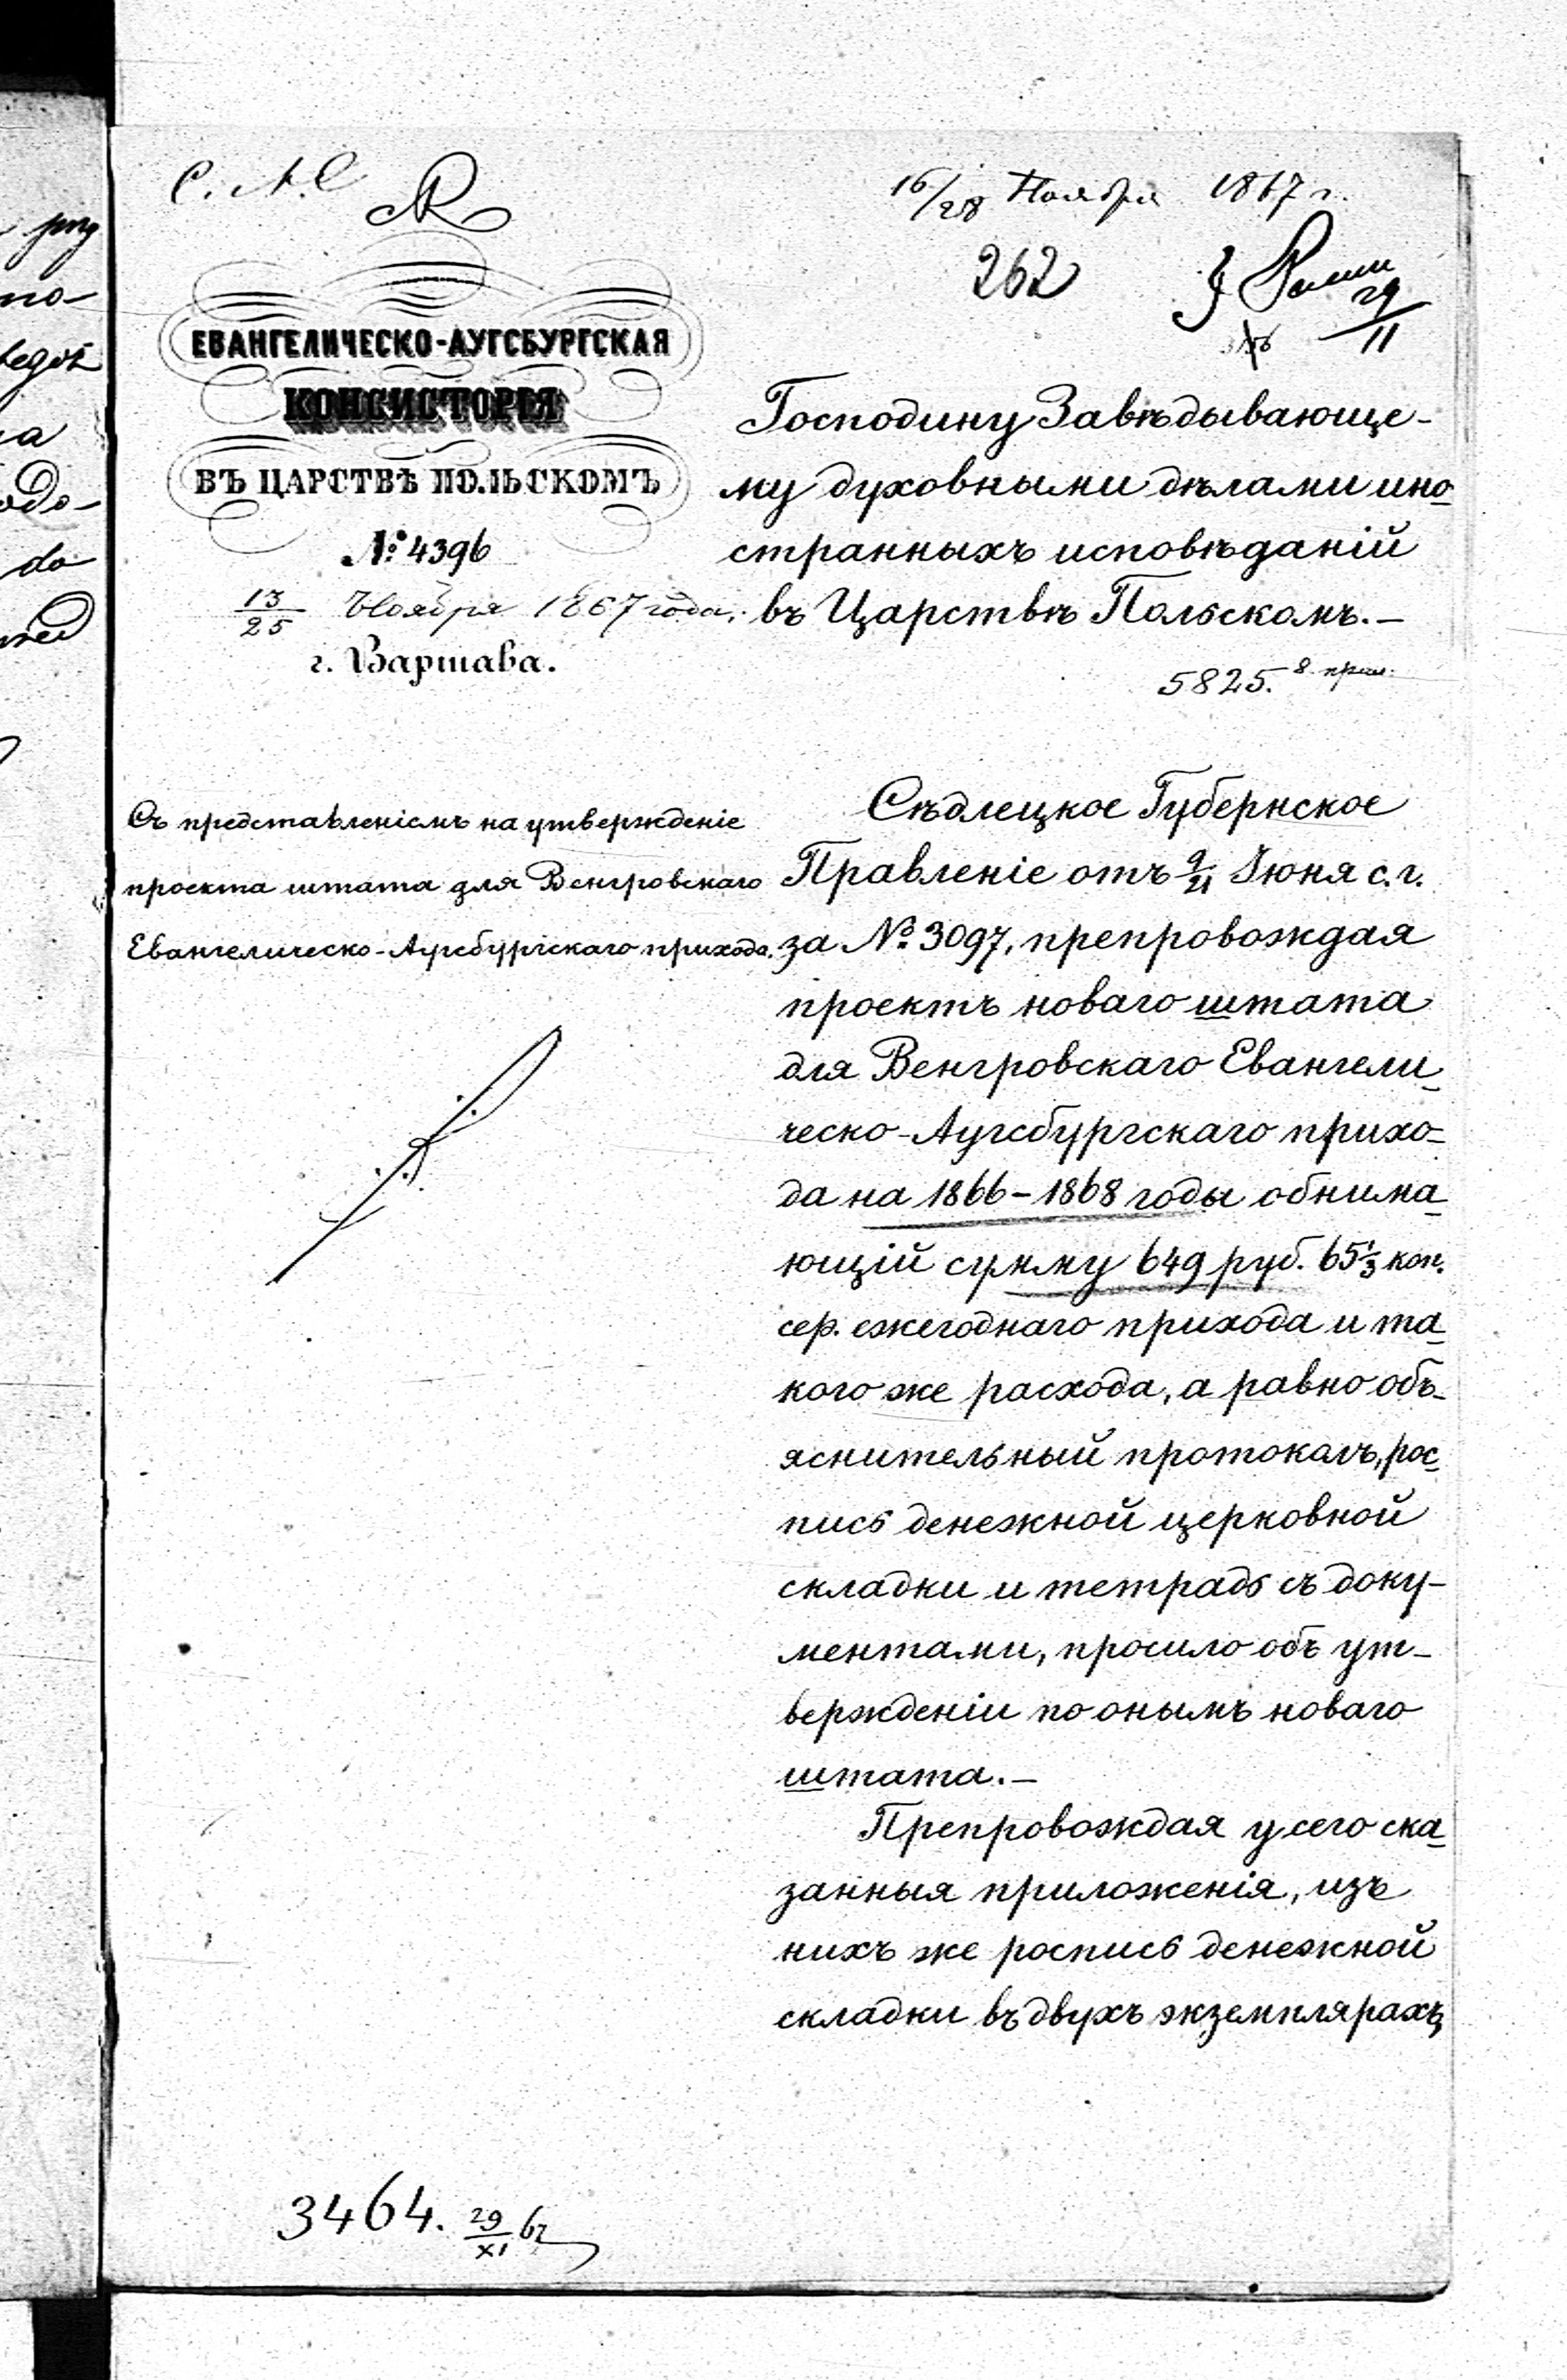 С. А. С
16/28 Ноября 1867 г.
262
29/11
ЕВАНГЕЛИЧЕСКО-АУГСБУРГСКАЯ
КОНСИСТОРІЯ
ВЪ ЦАРСТВѢ ПОЛЬСКОМЪ
№ 4396
13/25 Ноября 1867 года.
г. Варшава.
Господину Завѣдывающе-
му духовными дѣлами ино-
странныхъ исповѣданій
въ Царствѣ Польскомъ.—
5825. 8 прил.
Съ представленіемъ на утвержденіе
проекта штата для Венгровскаго
Евангелическо-Аугсбургскаго прихода.
Сѣдлецкое Губернское
Правленіе отъ 9/21 Іюня с. г.
за № 3097, препровождая
проектъ новаго штата
для Венгровскаго Евангели-
ческо-Аугсбургскаго прихо-
да на 1866–1868 годы обнима-
ющій сумму 649 руб. 65 1/3 коп.
сер. ежегоднаго прихода и та-
кого же расхода, а равно объ-
яснительный протоколъ, рос-
пись денежной церковной
складки и тетрадь съ доку-
ментами, просило объ ут-
вержденіи по онымъ новаго
штата.—
Препровождая у сего ска-
занныя приложенія, изъ
нихъ же роспись денежной
складки въ двухъ экземплярахъ,
3464. 29/XI 67